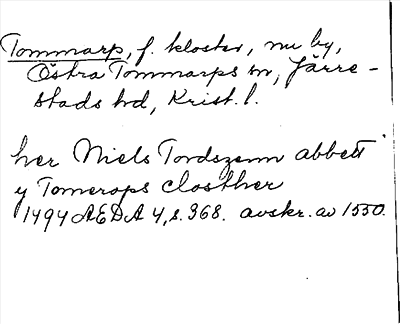 Tommarp, f. kloster, nu by,
Östra Tommarps sn, Järre-
stads hd, Krist. l.
her Niels Tordszenn abbett
y Tomerops closther
1494 ÆDA 4, s. 368. avskr. av 1550.